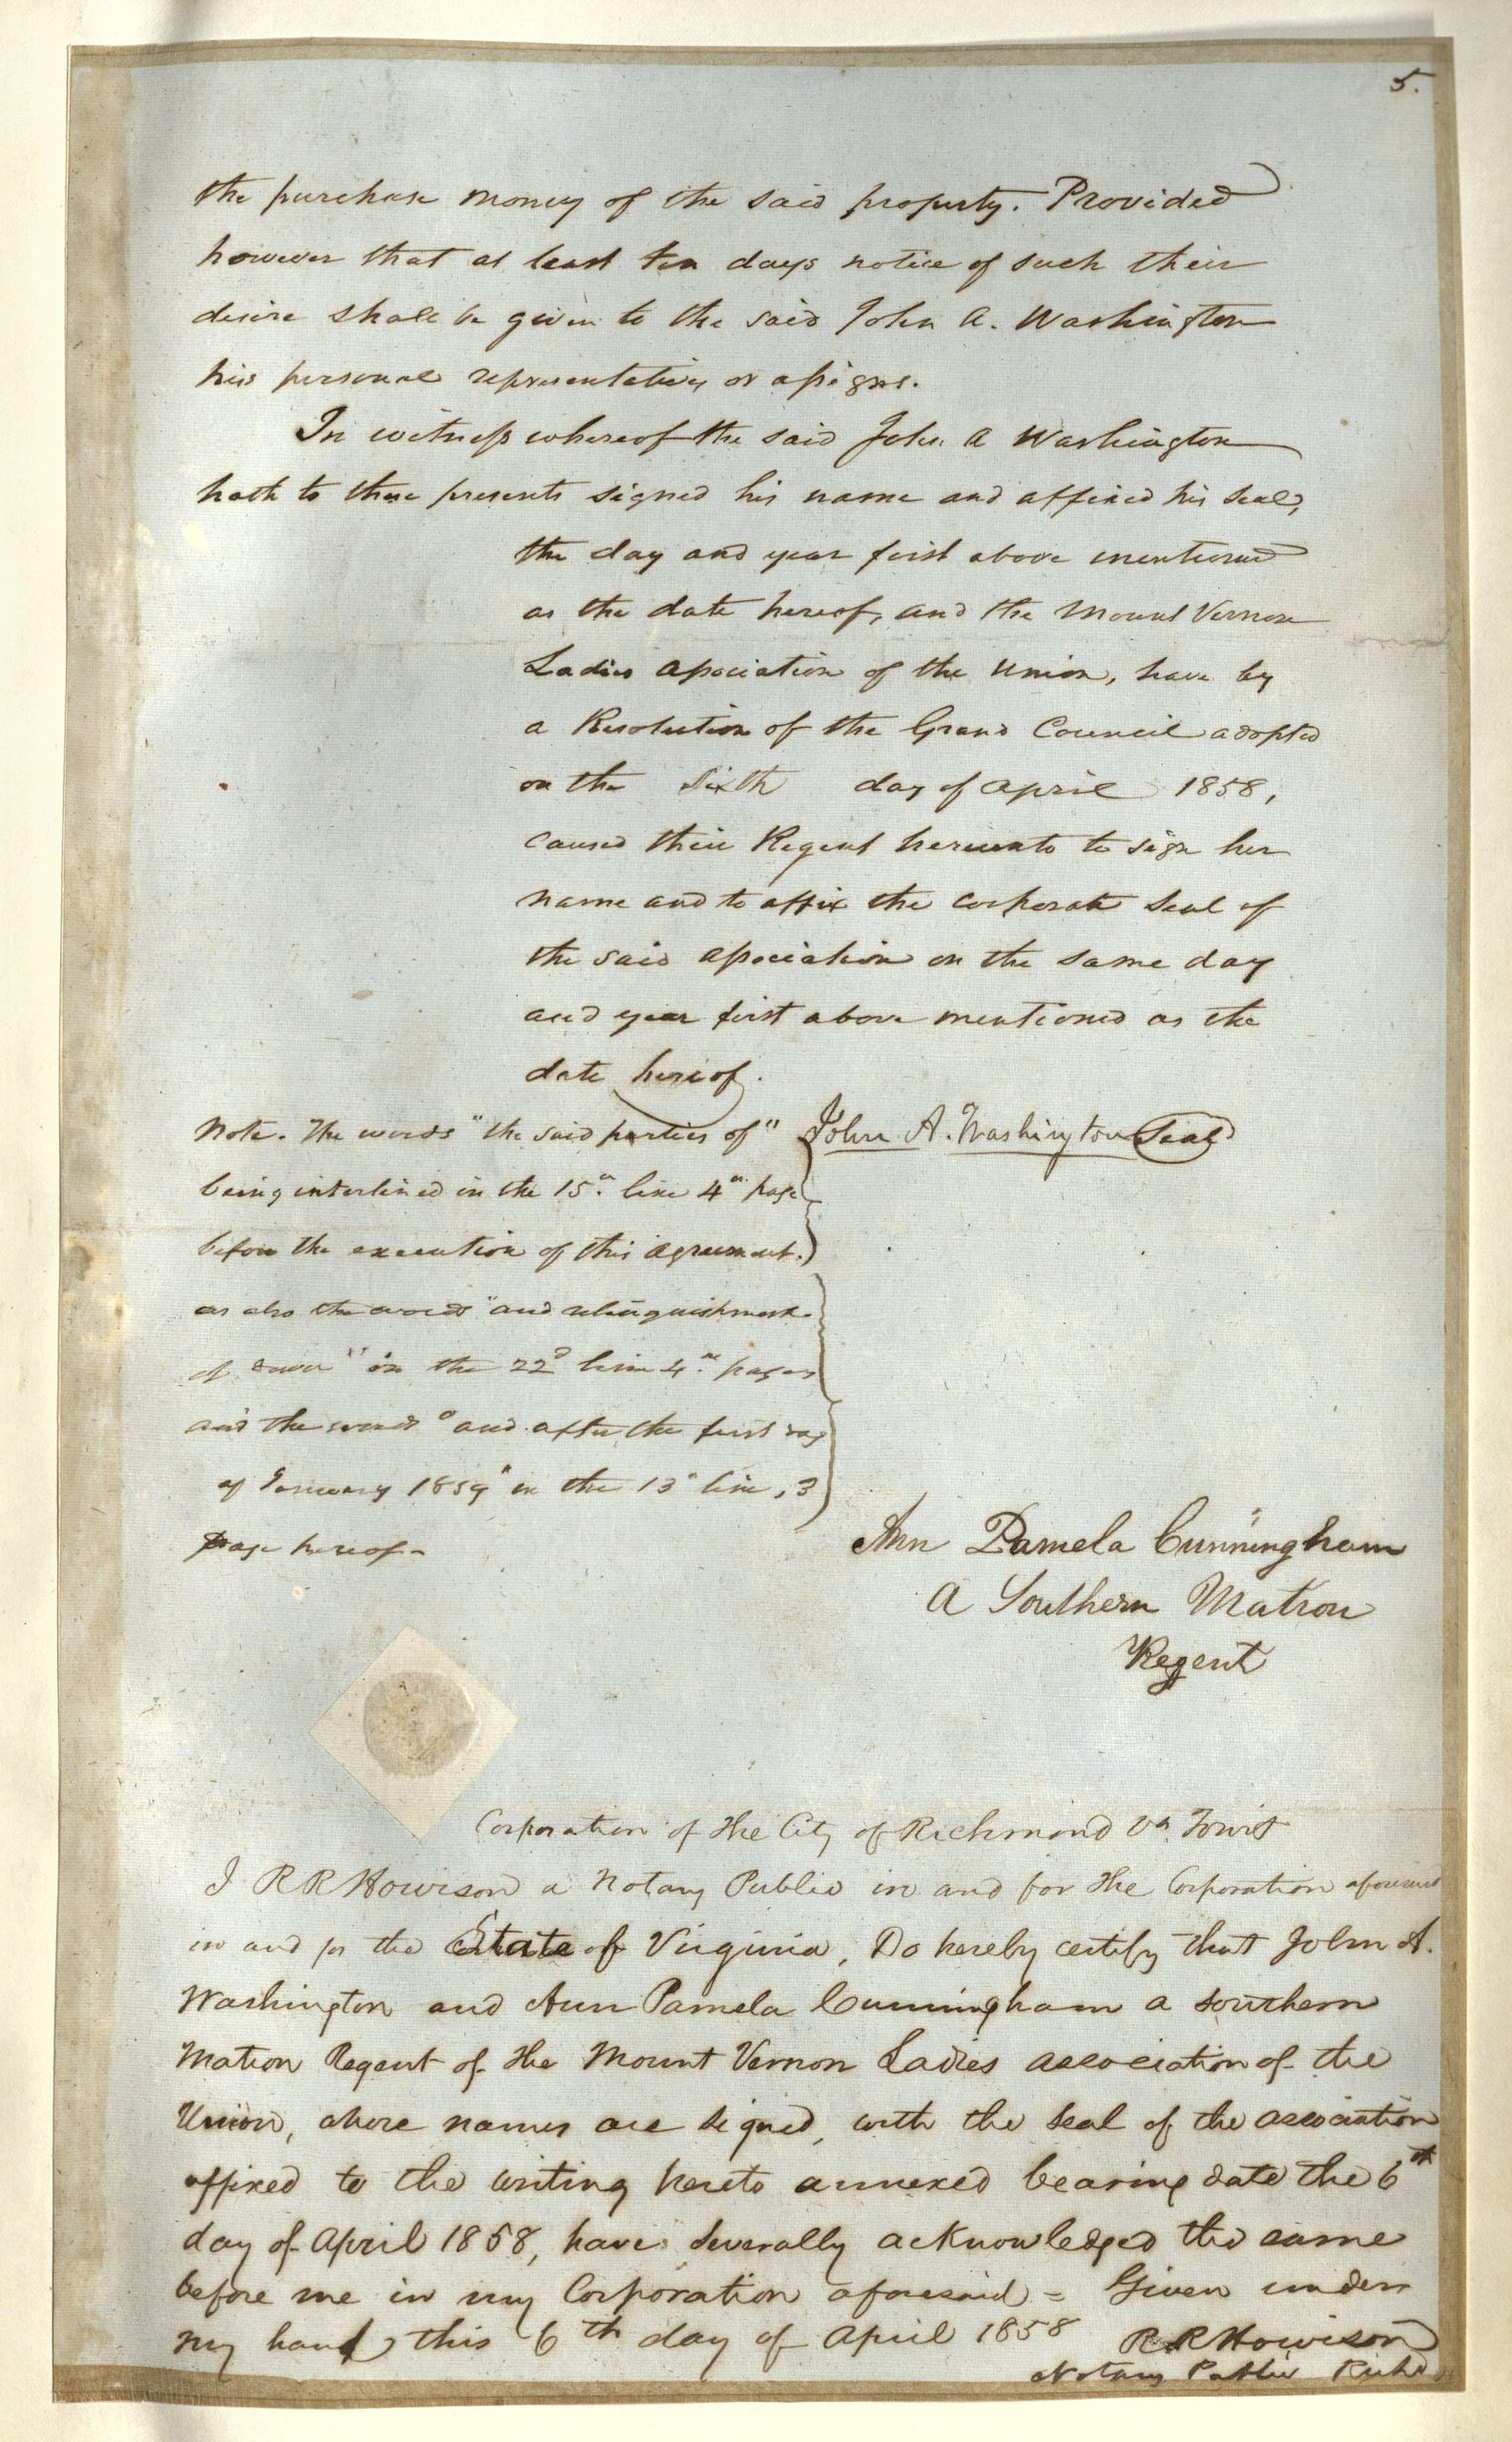 5.
the purchase money of the said property. Provided
however that at least ten days notice of such their
desire shall be given to the said John A. Washington
his personal representatives or assigns.
In witness whereof the said John A Washington
hath to these presents signed his name and affixed his seal,
the day and year first above mentioned
as the date hereof, and the Mount Vernon
Ladies Association of the Union, have by
a Resolution of the Grand Council adopted
on the Sixth day of April 1858,
caused their Regent hereunto to sign her
name and to affix the corporate seal of
the said association on the same day
and year first above mentioned as the
date hereof.
Note. The words "the said parties of"
being interlined in the 15th line 4th page
before the execution of this agreement.
as also the words "and relinquishment
of dower" in the 22d line 4th page
and the words "and after the first day
of January 1859" in the 13th line, 3
page hereof-
John A. Washington Seal
Ann Pamela Cunningham
A Southern Matron
Regent
Corporation of the City of Richmond Va Towit
I R R Howison a Notary Public in and for the Corporation aforesaid
in and for the State of Virginia, Do hereby certify that John A.
Washington and Ann Pamela Cunningham a southern
Matron Regent of the Mount Vernon Ladies association of the
Union, whose names are signed, with the seal of the association
affixed to the writing hereto annexed bearing date the 6th
day of April 1858, have severally acknowledged the same
before me in my Corporation aforesaid = Given under
my hand this 6th day of April 1858
R R Howison
Notary Public Richd